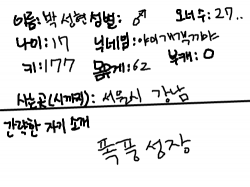 이름: 박성현 성별: ♂ 오너수: 27..
나이: 17 닉네임: 야이개객끼야
키: 177 몸무게: 62 북캐: 0
사는곳(시까지): 서울시 강남
간략한 자기 소개
폭풍 성장